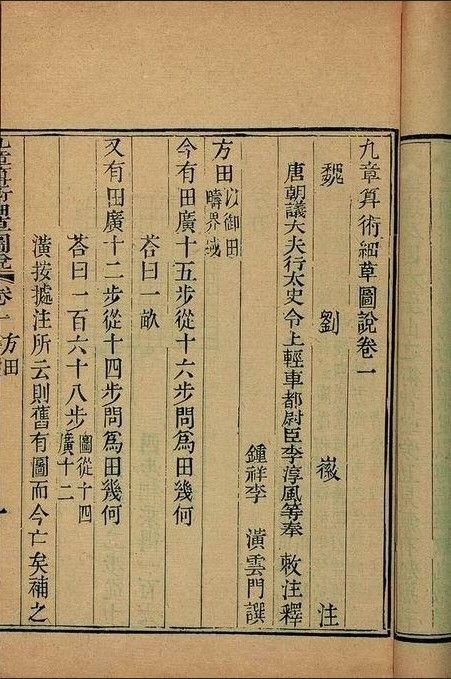 九章算術細草圖說卷一
魏 劉 徽 注
唐朝議大夫行太史令上輕車都尉臣李淳風等奉 敕注釋
鍾祥李 潢雲門譔
方田以御田疇界域
今有田廣十五步從十六步問爲田幾何
荅曰一畝
又有田廣十二步從十四步問爲田幾何
荅曰一百六十八步圖從十四廣十二
潢按據注所云則舊有圖而今亡矣補之
九章算術細草圖說 卷一 方田 一